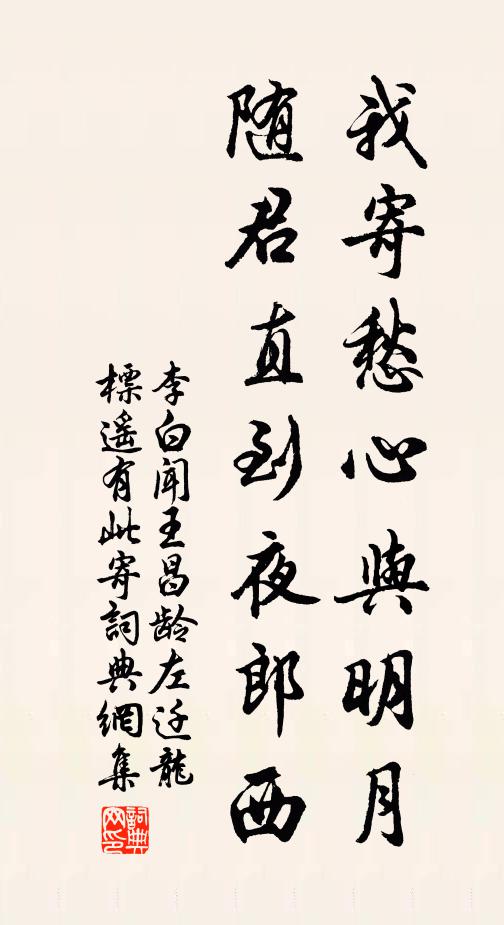 我寄愁心與明月
随君直到夜郎西
李白闻王昌龄左迁龍
標遥有此寄詞典網集
詞典
网印